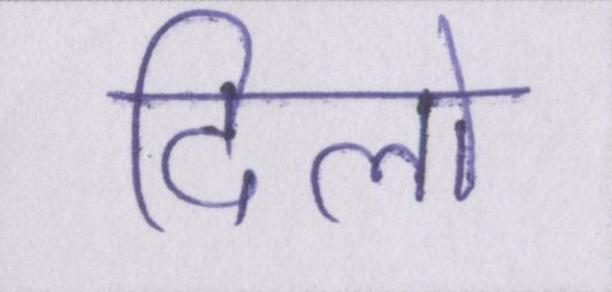 दिलो